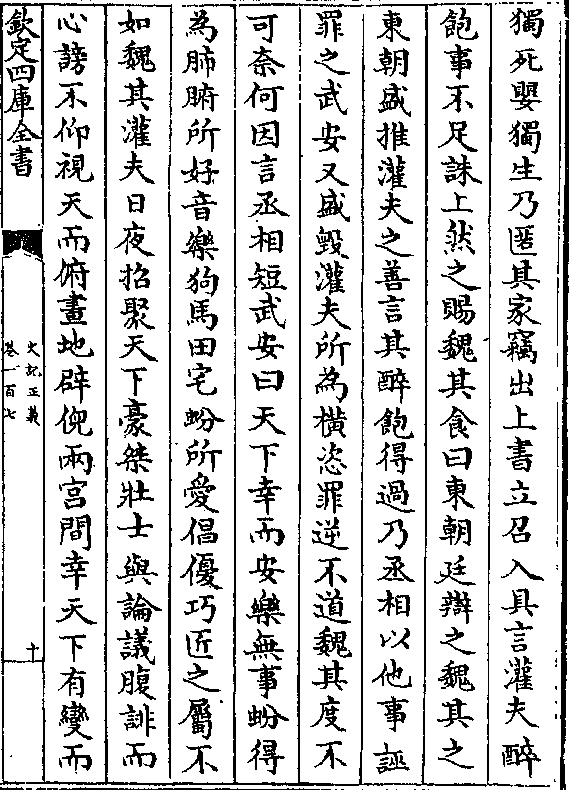 獨死嬰獨生乃匿其家竊出上書立召入具言灌夫醉
飽事不足誅上然之賜魏其食曰東朝廷辯之魏其之
東朝盛推灌夫之善言其醉飽得過乃丞相以他事誣
罪之武安又盛毀灌夫所為橫恣罪逆不道魏其度不
可奈何因言丞相短武安曰天下幸而安樂無事蚡得
為肺腑所好音樂狗馬田宅蚡所愛倡優巧匠之屬不
如魏其灌夫日夜招聚天下豪桀壯士與論議腹誹而
心謗不仰視天而俯畫地辟倪兩宮間幸天下有變而
欽定四庫全書
史記正義
卷一百七
十